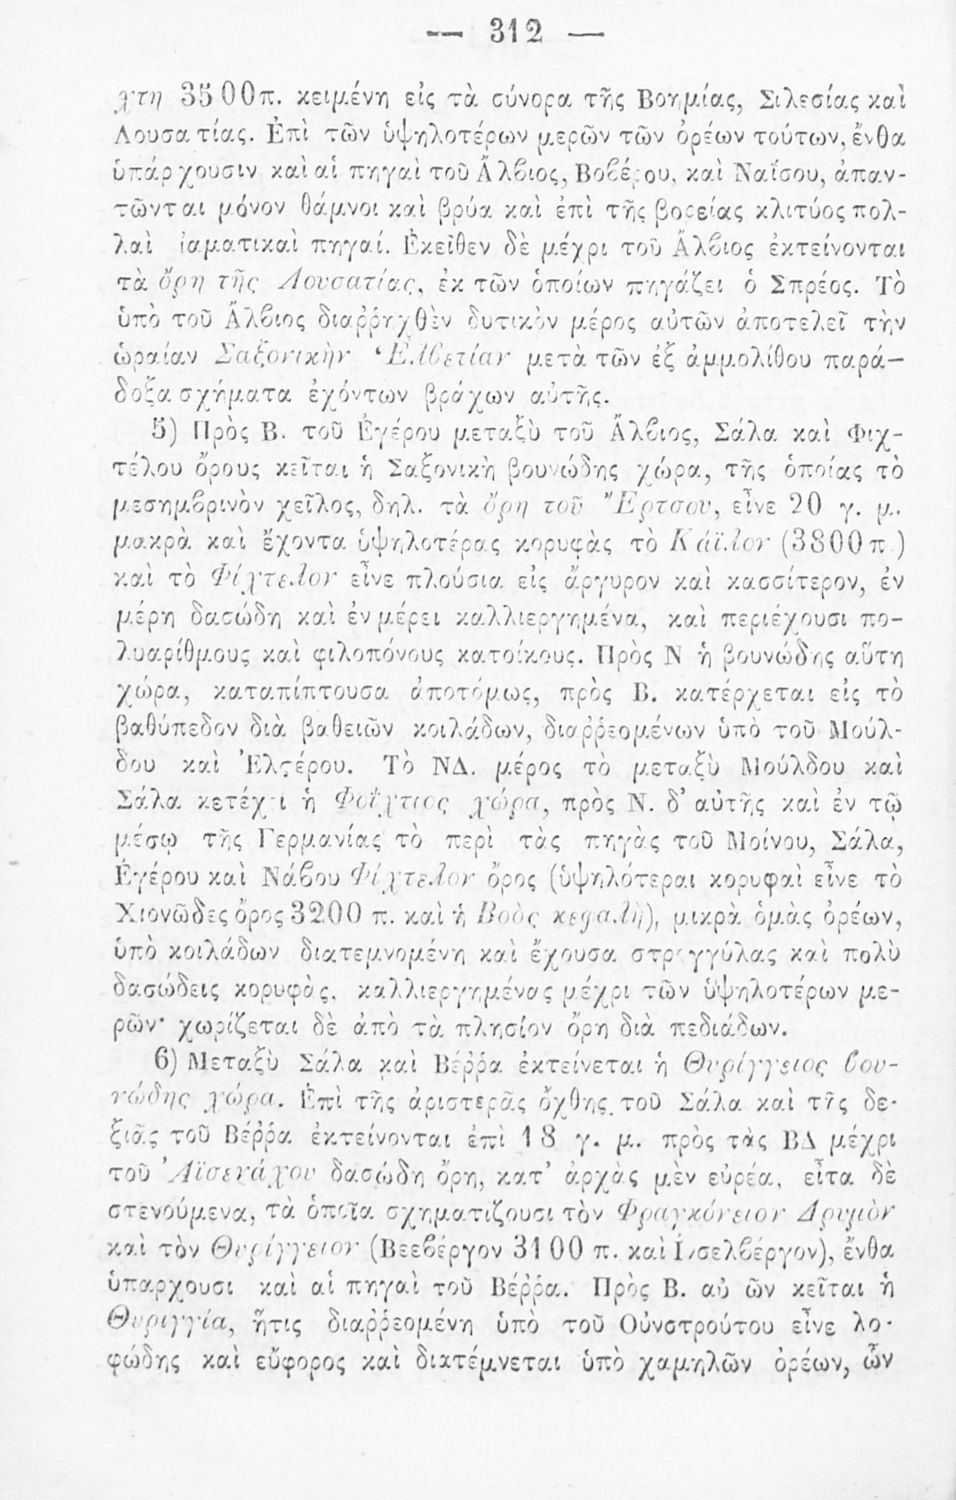 — 312 —
χτη 3500π. κειμένη εἰς τὰ σύνορα τῆς Βοημίας, Σιλεσίας καὶ
Λουσατίας. Ἐπὶ τῶν ὑψηλοτέρων μερῶν τῶν ὀρέων τούτων, ἔνθα
ὑπάρχουσιν καὶ αἱ πηγαὶ τοῦ Ἄλβιος, Βοβέρου, καὶ Ναΐσου, ἀπαν-
τῶνται μόνον θάμνοι καὶ βρύα καὶ ἐπὶ τῆς βορείας κλιτύος πολ-
λαὶ ἰαματικαὶ πηγαί. Ἐκεῖθεν δὲ μέχρι τοῦ Ἄλβιος ἐκτείνονται
τὰ ὄρη τῆς Λουσατίας, ἐκ τῶν ὁποίων πηγάζει ὁ Σπρέος. Τὸ
ὑπὸ τοῦ Ἄλβιος διαῤῥηχθὲν δυτικὸν μέρος αὐτῶν ἀποτελεῖ τὴν
ὡραίαν Σαξονικὴν Ἑλβετίαν μετὰ τῶν ἐξ ἀμμολίθου παρά-
δοξα σχήματα ἐχόντων βράχων αὐτῆς.
5) Πρὸς Β. τοῦ Ἐγέρου μεταξὺ τοῦ Ἄλβιος, Σάλα καὶ Φιχ-
τέλου ὄρους κεῖται ἡ Σαξονικὴ βουνώδης χώρα, τῆς ὁποίας τὸ
μεσημβρινὸν χεῖλος, δηλ. τὰ ὄρη τοῦ Ἔρτσου, εἶνε 20 γ. μ.
μακρὰ καὶ ἔχοντα ὑψηλοτέρας κορυφὰς τὸ Κάϊλον (3800π.)
καὶ τὸ Φίχτελον εἶνε πλούσια εἰς ἄργυρον καὶ κασσίτερον, ἐν
μέρη δασώδη καὶ ἐν μέρει καλλιεργημένα, καὶ περιέχουσι πο-
λυαρίθμους καὶ φιλοπόνους κατοίκους. Πρὸς Ν ἡ βουνώδης αὕτη
χώρα, καταπίπτουσα ἀποτόμως, πρὸς Β. κατέρχεται εἰς τὸ
βαθύπεδον διὰ βαθειῶν κοιλάδων, διαῤῥεομένων ὑπὸ τοῦ Μούλ-
δου καὶ Ἐλστέρου. Τὸ ΝΔ. μέρος τὸ μεταξὺ Μούλδου καὶ
Σάλα κετέχει ἡ Φοΐχτιος χώρα, πρὸς Ν. δ' αὐτῆς καὶ ἐν τῷ
μέσῳ τῆς Γερμανίας τὸ περὶ τὰς πηγὰς τοῦ Μοίνου, Σάλα,
Ἐγέρου καὶ Νάβου Φίχτελον ὄρος (ὑψηλότεραι κορυφαὶ εἶνε τὸ
Χιονῶδες ὄρος 3200 π. καὶ ἡ Βοὸς κεφαλὴ), μικρὰ ὁμὰς ὀρέων,
ὑπὸ κοιλάδων διατεμνομένη καὶ ἔχουσα στρογγύλας καὶ πολὺ
δασώδεις κορυφὰς, καλλιεργημένας μέχρι τῶν ὑψηλοτέρων με-
ρῶν· χωρίζεται δὲ ἀπὸ τὰ πλησίον ὄρη διὰ πεδιάδων.
6) Μεταξὺ Σάλα καὶ Βέῤῥα ἐκτείνεται ἡ Θυρίγγειος βου-
νώδης χώρα. Ἐπὶ τῆς ἀριστερᾶς ὄχθης τοῦ Σάλα καὶ τῆς δε-
ξιᾶς τοῦ Βέῤῥα ἐκτείνονται ἐπὶ 18 γ. μ. πρὸς τὰς ΒΔ μέχρι
τοῦ Ἀϊσενάχου δασώδη ὄρη, κατ' ἀρχὰς μὲν εὐρέα, εἶτα δὲ
στενούμενα, τὰ ὁποῖα σχηματίζουσι τὸν Φραγκόνειον Δρυμὸν
καὶ τὸν Θυρίγγειον (Βεεβέργον 3100 π. καὶ Ἰνσελβέργον), ἔνθα
ὑπάρχουσι καὶ αἱ πηγαὶ τοῦ Βέῤῥα. Πρὸς Β. αὐτῶν κεῖται ἡ
Θυριγγία, ἥτις διαῤῥεομένη ὑπὸ τοῦ Οὐνστρούτου εἶνε λο-
φώδης καὶ εὔφορος καὶ διατέμνεται ὑπὸ χαμηλῶν ὀρέων, ὧν